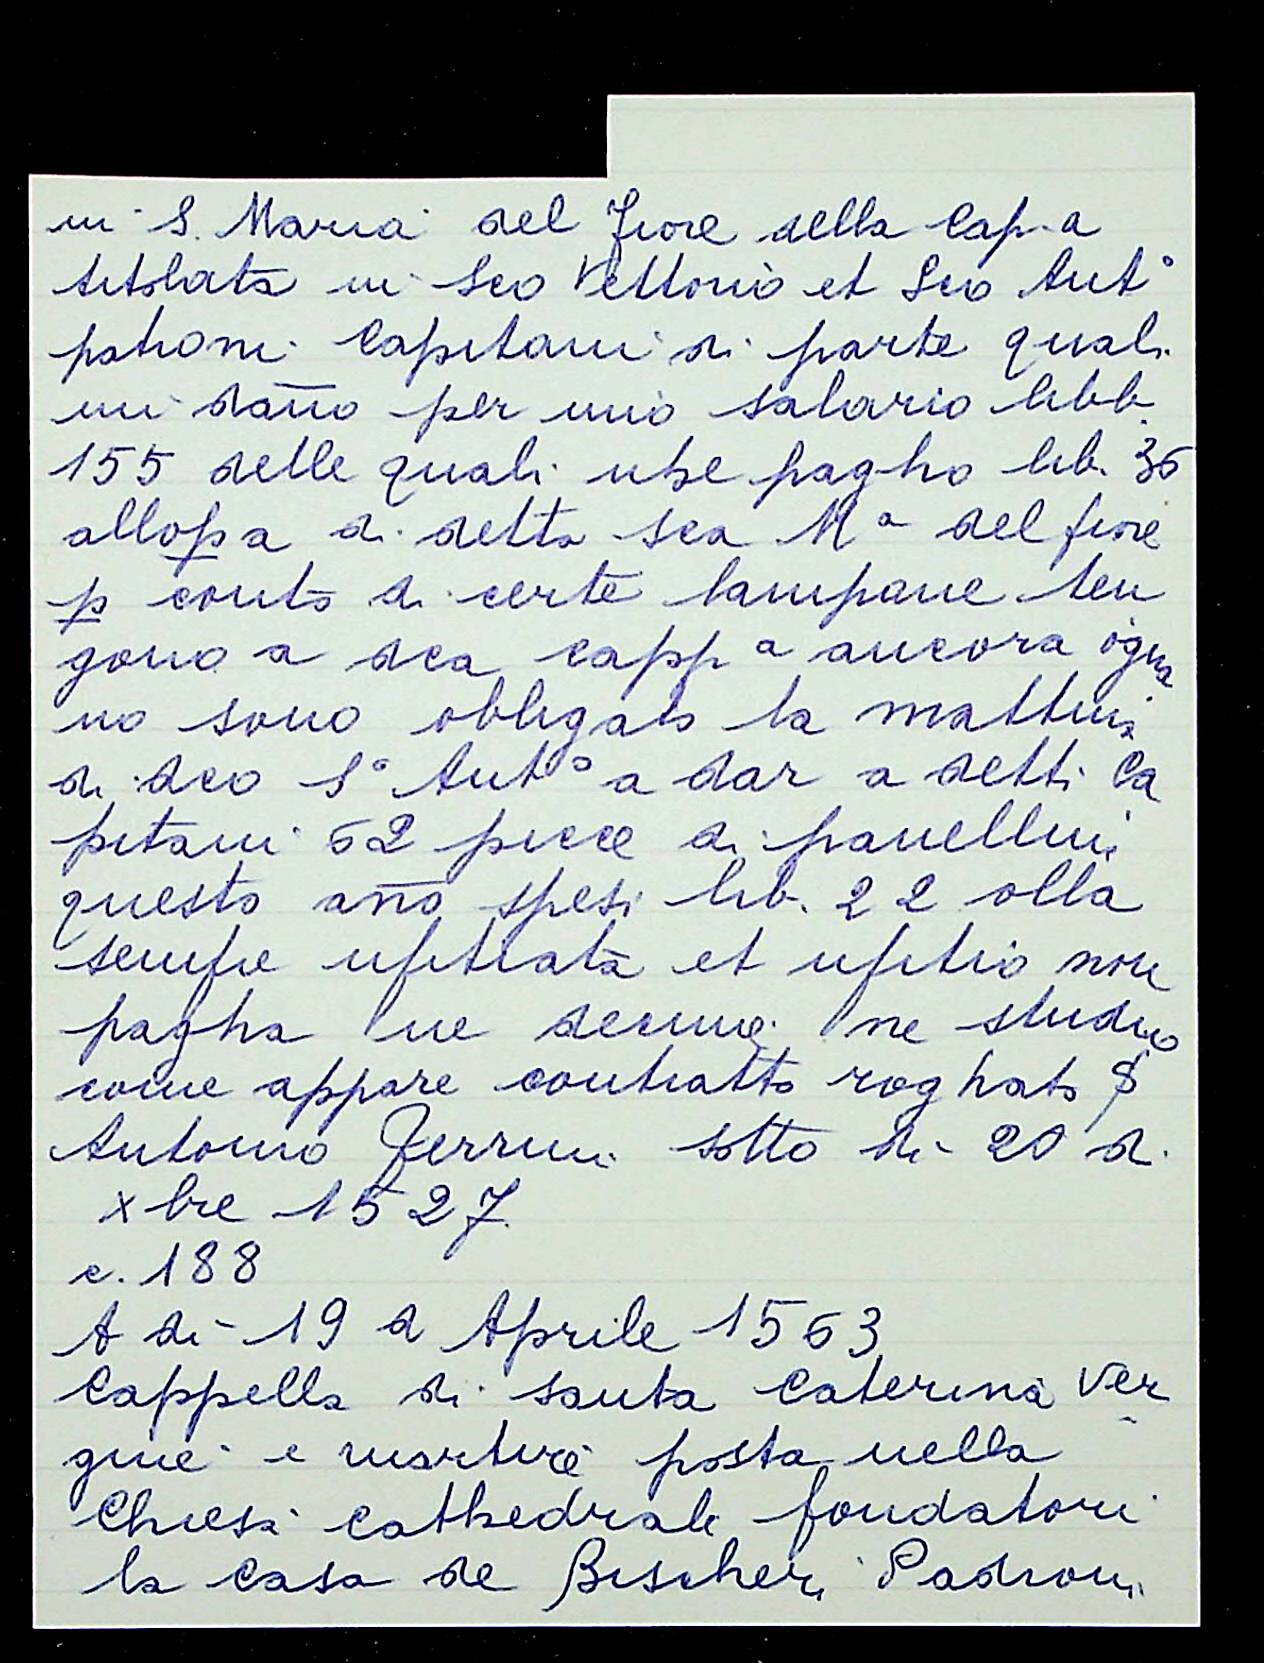 in S. Maria del Fiore della Cap.a
titolata in Sco Vettorio et Sco Ant°
patroni Capitani di parte quali
mi dan̄o per mio salario libb.
155 delle quali ne pagho lib. 36
allopa di detta sca Mª del fiore
p conto di certe lampane ten
gono a dca cappª ancora ogna
no sono obligato la mattina
di dco S° Ant° a dar a detti Ca
pitani 62 picce di panellini
questo an̄o spesi lib. 22 olla
sempre ufitiata et ufitio non
pagha ne decime ne studio
come appare contratto roghato
Antonio Ferrini sotto dì 20 di
xbre 1527
c. 188
A dì 19 d Aprile 1563
Cappella di santa Caterina Ver
gine e martire posta nella
Chiesa Cathedrale fondatori
la casa de Bischeri Padroni